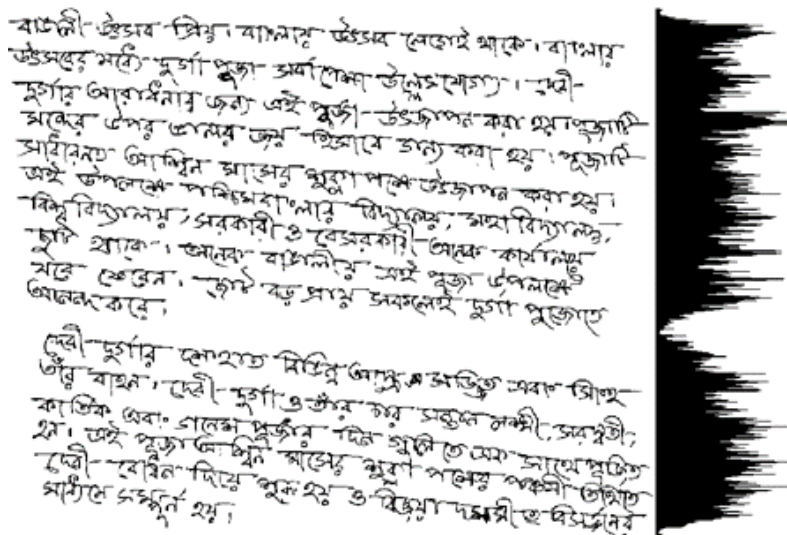 বাঙালী উৎসব প্রিয়। বাংলায় উৎসব লেগেই থাকে। বাংলার
উৎসবের মধ্যে দুর্গা পুজা সর্বাপেক্ষা উল্লেখযোগ্য। দেবী
দুর্গার আরাধনার জন্য এই পূজা উৎজাপন করা হয়। পূজাটি
মন্দের উপর ভালোর জয় হিসাবে গন্য করা হয়। পূজাটি
সাধারনত আশ্বিন মাসের শুক্ল পক্ষে উৎজাপন করা হয়।
এই উপলক্ষে পশ্চিমবাংলার বিদ্যালয়, মহাবিদ্যালয়,
বিশ্ববিদ্যালয়, সরকারী ও বেসরকারী অনেক কার্যালয়
ছুটি থাকে। অনেক বাঙালীর এই পূজা উপলক্ষে
ঘরে ফেরেন। ছোট বড় প্রায় সকলেই দুর্গা পুজোতে
আনন্দ করে।
দেবী দুর্গার দশহাত বিভিন্ন অস্ত্রে সজ্জিত এবং সিংহ
তাঁর বাহন। দেবী দুর্গা ও তাঁর চার সন্তান লক্ষ্মী, সরস্বতী,
কার্তিক এবং গনেশ পূজার দিন গুলিতে এক সাথে পূজিত
হন। এই পূজা আশ্বিন মাসের শুক্লা পক্ষের পঞ্চমী তিথিতে
দেবী বোধন দিয়ে শুরু হয় ও বিজয়া দশমীতে বিসর্জনের
মাধ্যমে সম্পূর্ন হয়।